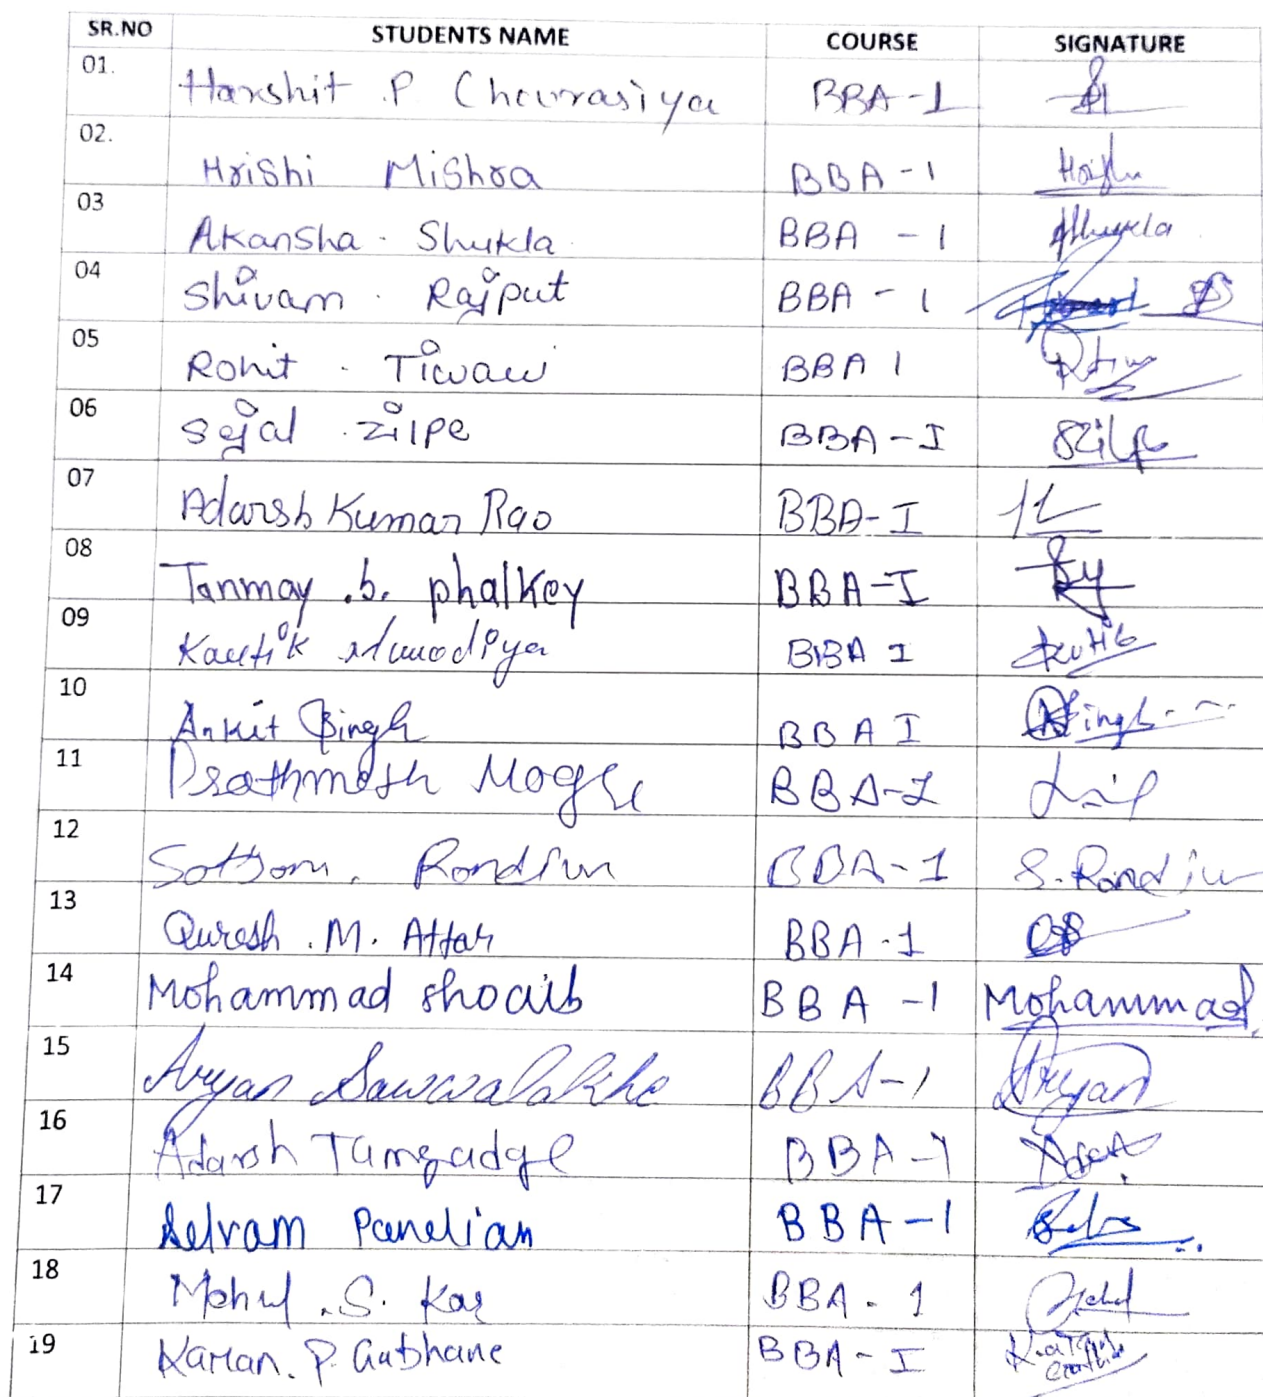 SR.NO STUDENTS NAME COURSE SIGNATURE
01. Harshit .P Chaurasiya BBA-1
02. Hrishi Mishra BBA-1
03 Akansha. Shukla BBA-1 AShukla
04 Shivam. Rajput BBA-1
05 Rohit. Tiwari BBA 1
06 Sejal .zilpe BBA-I SZilpe
07 Adarsh Kumar Rao BBA-I
08 Tanmay .b. phalkey BBA-I
09 Kartik BBA I
10 Ankit Singh BBA I ASingh
11 Prathmesh BBA-I
12 BBA-1
13 Quresh .M. Attar BBA-1
14 Mohammad shoaib BBA-1 Mohammad
15 Aryan Sawwalakhe BBA-1 Aryan
16 Adarsh Tamgadge BBA-1
17 Selvam Pandian BBA-1
18 Mehul .S. Kar BBA-1
19 Karan. P. Gabhane BBA-I